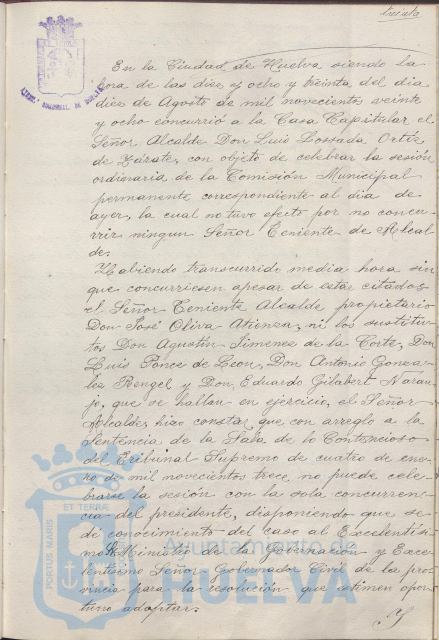 treinta
En la Ciudad de Huelva siendo la
hora de las diez y ocho y treinta del dia
diez de Agosto de mil novecientos veinte
y ocho concurrió a la Casa Capitular el
Señor Alcalde Don Luis Lossada Ortiz
de Zárate, con objeto de celebrar la sesión
ordinaria de la Comisión Municipal
permanente correspondiente al dia de
ayer, la cual no tuvo efecto por no concu-
rrir ningun Señor Teniente de Alcal
de.
Habiendo transcurrido media hora sin
que concurriesen apesar de estar citados
el Señor Teniente Alcalde propietario
Don José Oliva Atienza, ni los sustitu-
tos Don Agustin Jimenez de la Corte, Don
Luis Ponce de Leon, Don Antonio Gonza-
lez Rengel y Don Eduardo Gilabert Naran-
jo, que se hallan en ejercicio, el Señor
Alcalde, hizo constar que con arreglo a la
Sentencia de la Sala de lo Contencioso
del Tribunal Supremo de cuatro de ene-
ro de mil novecientos trece, no puede cele-
brarse la sesión con la sola concurren-
cia del presidente, disponiendo que se
de conocimiento del caso al Excelentisi-
mo Ministro de la Gobernación y Exce-
lentisimo Señor Gobernador Civil de la pro-
vincia para la resolución que estimen opor-
tuno adoptar.
PORTUS MARIS ET TERRAE
Ayuntamiento
HUELVA